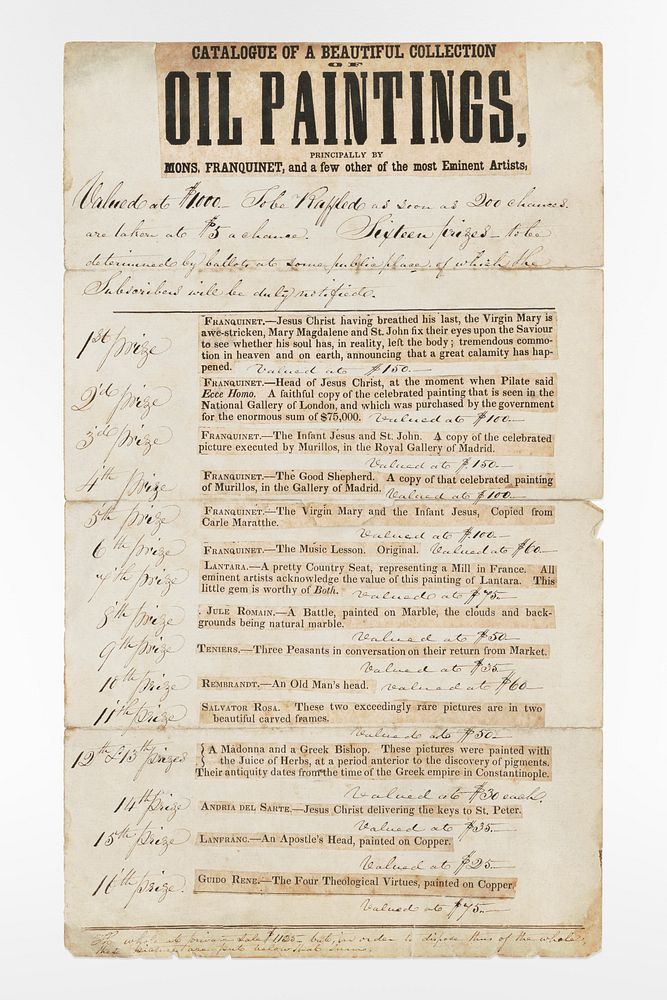 CATALOGUE OF A BEAUTIFUL COLLECTION
OF
OIL PAINTINGS,
PRINCIPALLY BY
MONS. FRANQUINET, and a few other of the most Eminent Artists,
Valued at $1,000 - To be Raffled as soon as 200 chances
are taken at $5 a chance. Sixteen prizes - to be
determined by ballots at some public place, of which the
Subscribers will be duly notified.
1st prize
FRANQUINET.—Jesus Christ having breathed his last, the Virgin Mary is
awe-stricken, Mary Magdalene and St. John fix their eyes upon the Saviour
to see whether his soul has, in reality, left the body; tremendous commo-
tion in heaven and on earth, announcing that a great calamity has hap-
pened. Valued at $150.—
2d prize
FRANQUINET.—Head of Jesus Christ, at the moment when Pilate said
Ecce Homo. A faithful copy of the celebrated painting that is seen in the
National Gallery of London, and which was purchased by the government
for the enormous sum of $75,000. Valued at $100.—
3d prize
FRANQUINET.—The Infant Jesus and St. John. A copy of the celebrated
picture executed by Murillos, in the Royal Gallery of Madrid.
Valued at $150.—
4th prize
FRANQUINET.—The Good Shepherd. A copy of that celebrated painting
of Murillos, in the Gallery of Madrid. Valued at $100.—
5th prize
FRANQUINET.—The Virgin Mary and the Infant Jesus, Copied from
Carle Maratthe.
Valued at $100.—
6th prize
FRANQUINET.—The Music Lesson. Original. Valued at $60—
7th prize
LANTARA.—A pretty Country Seat, representing a Mill in France. All
eminent artists acknowledge the value of this painting of Lantara. This
little gem is worthy of Both. Valued at $75.—
8th prize
JULE ROMAIN.—A Battle, painted on Marble, the clouds and back-
grounds being natural marble.
Valued at $50—
9th prize
TENIERS.—Three Peasants in conversation on their return from Market.
Valued at $35—
10th prize
REMBRANDT.—An Old Man's head. Valued at $60—
11th prize
SALVATOR ROSA. These two exceedingly rare pictures are in two
beautiful carved frames.
Valued at $50.—
12th & 13th prizes
{ A Madonna and a Greek Bishop. These pictures were painted with
the Juice of Herbs, at a period anterior to the discovery of pigments.
Their antiquity dates from the time of the Greek empire in Constantinople.
Valued at $30 each.
14th prize
ANDRIA DEL SARTE.—Jesus Christ delivering the keys to St. Peter.
Valued at $35.—
15th prize
LANFRANC.—An Apostle's Head, painted on Copper.
Valued at $25—
16th prize.
GUIDO RENE.—The Four Theological Virtues, painted on Copper.
Valued at $75.—
The whole at private sale $1125 - but, in order to dispose thus of the whole,
these are put below that sum.